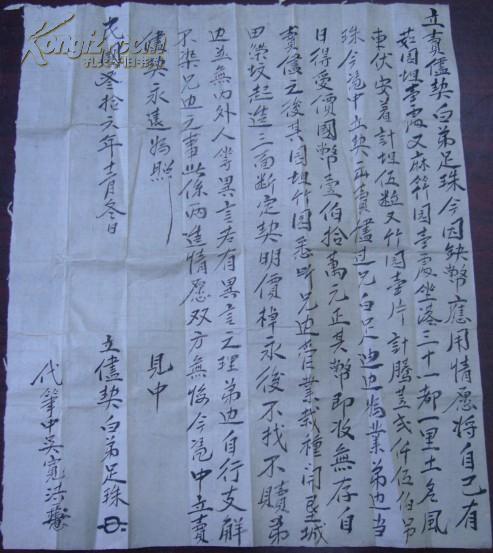 立賣儘契白弟足珠今因缺幣應用情愿將自己有
菇园坦壹處又麻竿园壹處坐落三十一都一里土名風
東伏安着計坦伍粒又竹园壹片計騰壹弍仟伍伯吊
珠今憑中立契再賣儘过兄白足迪边為業弟边当
日得受價國幣壹伯拾萬元正其幣即收無存自
賣儘之後其园坦竹园悉听兄边管業栽種開垦城
田榮坟起造三面断定契明價棹永後不找不贖弟
边並無内外人等異言若有異言之理弟边自行支解
不染兄边之事此係两造情愿双方無悔今憑中立賣
儘契永遠為照
民國叁拾六年十一月冬日
見中
立儘契白弟足珠
代筆中吳寬洪
Kongfz.com
孔夫子旧书网